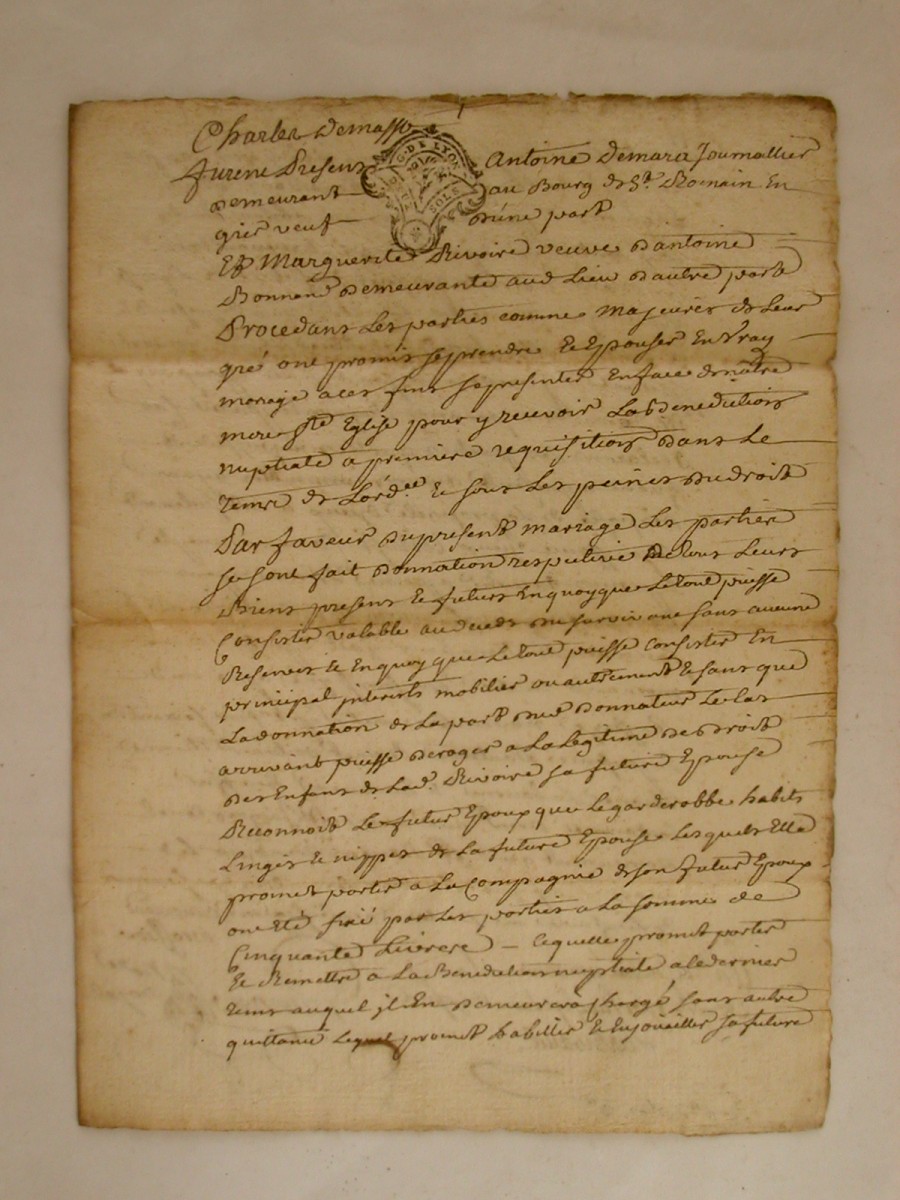 Charles Demasso
furent Presens Antoine Demara Journallier
demeurant au Bourg de St. Romain En
gier veuf d'une part
Et Marguerite Rivoire veuve d'antoine
Bonnan demeurante aud Lieu d'autre part
Procedans Les parties comme Majeures de Leur
gré ont promis se prendre Et Epouser En vray
mariage a ces fins se presenter En face de notre
mere Ste Eglise pour y recevoir La Benediction
nuptiale a premiere requisition dans Le
tems de L'ord.ce & sous Les peines du droit
Par faveur du present mariage Les parties
se sont fait donnation respective de tous Leurs
Biens presens & futurs En quoy que Le tout puisse
Consister valable au deceds du survivant sans aucune
Reserve & En quoy que Le tout puisse Consister En
principal interests mobilier ou autrement & sans que
La donnation de La part dud donnateur Le Cas
arrivant puisse deroger a La Legitime de droit
des Enfans de Lad. Rivoire sa future Epouse
Reconnoit Le futur Epoux que Le garderobbe habits
Linges & nippes de La future Epouse Lesquels Elle
promet porter a La Compagnie de son futur Epoux
ont Eté fixé par Les parties a La somme de
Cinquante Livres — Laquelle promet porter
Et Remettre a La Benediction nuptiale a Le dernier
tems auquel il En demeurera Chargé sans autre
quittance Lequel promet habiller & Enjoüailler sa future
G. DE LYON
SOLS